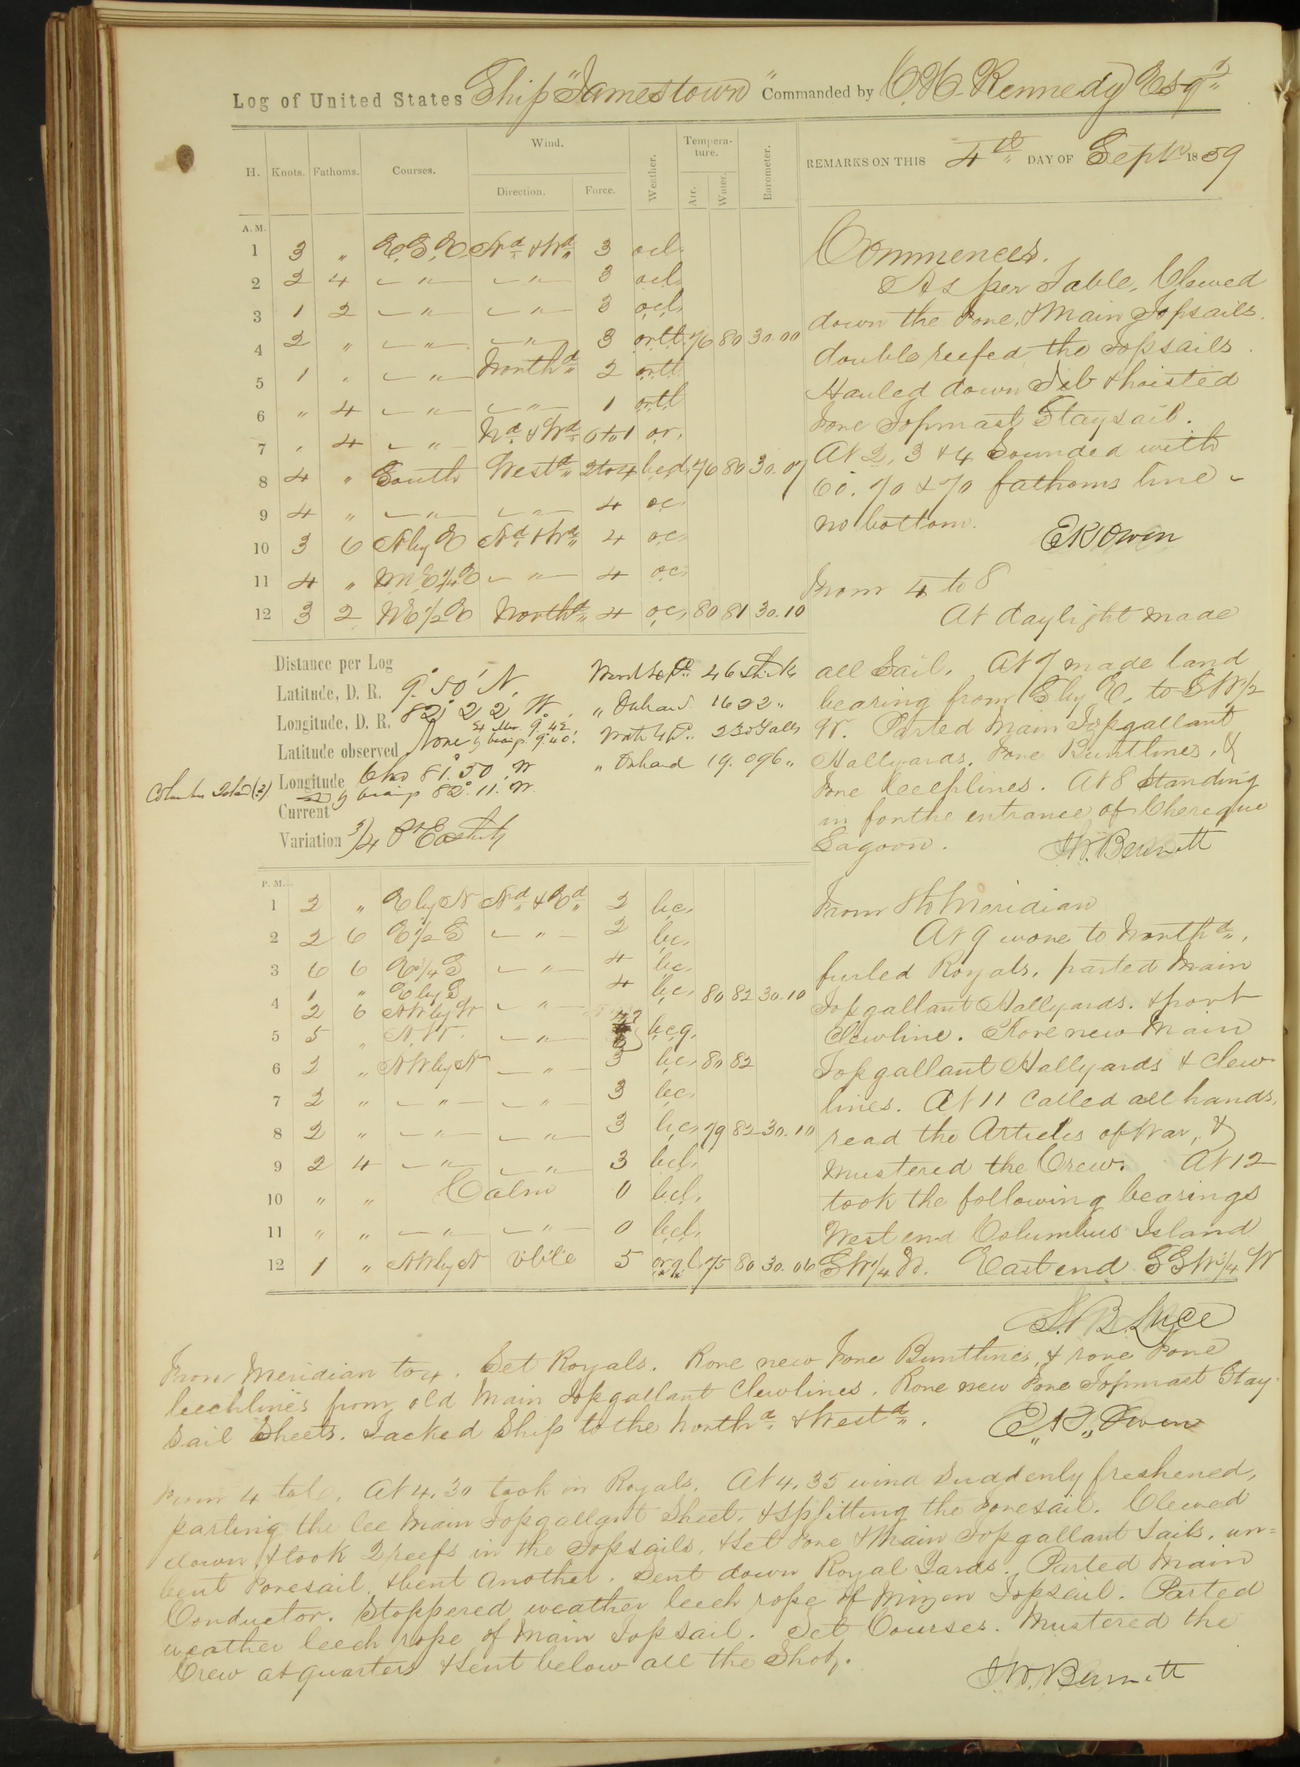 Log of United States Ship "Jamestown" Commanded by C. H. Kennedy Esqr
H. Knots. Fathoms. Courses. Wind. Direction. Force. Weather. Tempera-ture. Air. Water. Barometer.
REMARKS ON THIS 4th DAY OF Sept 1859
A. M.
1 3 " E.S.E. Nd & Wd 3 ocl.
2 2 4 — " — — " — 3 ocl.
3 1 2 — " — — " — 3 ocl.
4 2 " — " — — " — 3 ortl. 76 80 30.00
5 1 " — " — Northd 2 ortl
6 " 4 — " — — " — 1 ortl
7 " 4 — " Nd & Wd 0 to 1 or.
8 4 " South Westd 2 to 4 bcd. 76 80 30.07
9 4 " — " — — " — 4 oc
10 3 6 N by E Nd & Wd 4 oc.
11 4 " NNE 1/4 E — " — 4 oc.
12 3 2 NE 1/2 E Northd 4 oc. 80 81 30.10
Commences.
As per Table, Clewed
down the Fore, & Main Topsails.
double reefed the Topsails.
Hauled down Jib & hoisted
Fore Topmast Staysail.
At 2, 3 & 4 Sounded with
60. 70 & 70 fathoms line -
no bottom.
E K Owen
From 4 to 8
At daylight made
all Sail. At 7 made land
bearing from S by E. to SW 1/2
W. Parted Main Topgallant
Hallyards, Fore Buntlines, &
Fore Leechlines. At 8 Standing
in for the entrance of Cheregue
Lagoon.
J. W. Bennett
Distance per Log
Latitude, D. R. 9° 50' N.
Longitude, D. R. 82° 22 W.
Latitude observed None by bearings 9° 40'
Longitude Chro 81° 50' W
by bearings 82° 11' W.
Columbus Island (2)
Current
Variation 3/4 Pt Eastly
46
" On hand 1622 "
230 Galls
" On hand 19.096 "
P. M.
1 2 " E by N Nd & Ed 2 bc.
2 2 6 E 1/2 S — " — 2 bc.
3 6 6 E 3/4 S — " — 4 bc.
4 1 " E by S 4 bc. 80 82 30.10
2 6 NW by W — " —
5 5 " N.W — " — bcq.
6 2 " NW by N — " — 3 bc. 80 82
7 2 " — " — — " — 3 bc.
8 2 " — " — — " — 3 bc. 79 82 30.10
9 2 4 — " — — " — 3 bcl.
10 " " Calm 0 bcl.
11 " " — " — — " — 0 bcl.
12 1 " NW by N vble 5 orql. 75 80 30.06
From 8 to Meridian
At 9 wore to Northd,
furled Royals, parted Main
Topgallant Hallyards. & port
Clewline. Rove new Main
Topgallant Hallyards & Clew-
lines. At 11 Called all hands,
read the Articles of War, &
Mustered the Crew. At 12
took the following bearings
West end Columbus Island
SW 1/4 W. East end SSW 3/4 W
S. B. Luce
From Meridian to 4. Set Royals. Rove new Fore Buntlines, & rove Fore
leechlines from old Main Topgallant Clewlines. Rove new Fore Topmast Stay-
sail Sheets. Tacked Ship to the Northd & Westd.
E. K. Owen
From 4 to 6. At 4.30 took in Royals. At 4.35 wind Suddenly freshened,
parting the lee Main Topgallant Sheet, & Splitting the Foresail. Clewed
down, & took 2 reefs in the Topsails, & Set Fore & Main Topgallant Sails, un=
bent Foresail, & bent another. Sent down Royal Yards. Parted Main
Conductor. Stoppered weather leech rope of Mizen Topsail. Parted
weather leech rope of Main Topsail. Set Courses. Mustered the
Crew at quarters & Sent below all the Shot.
J. W. Bennett